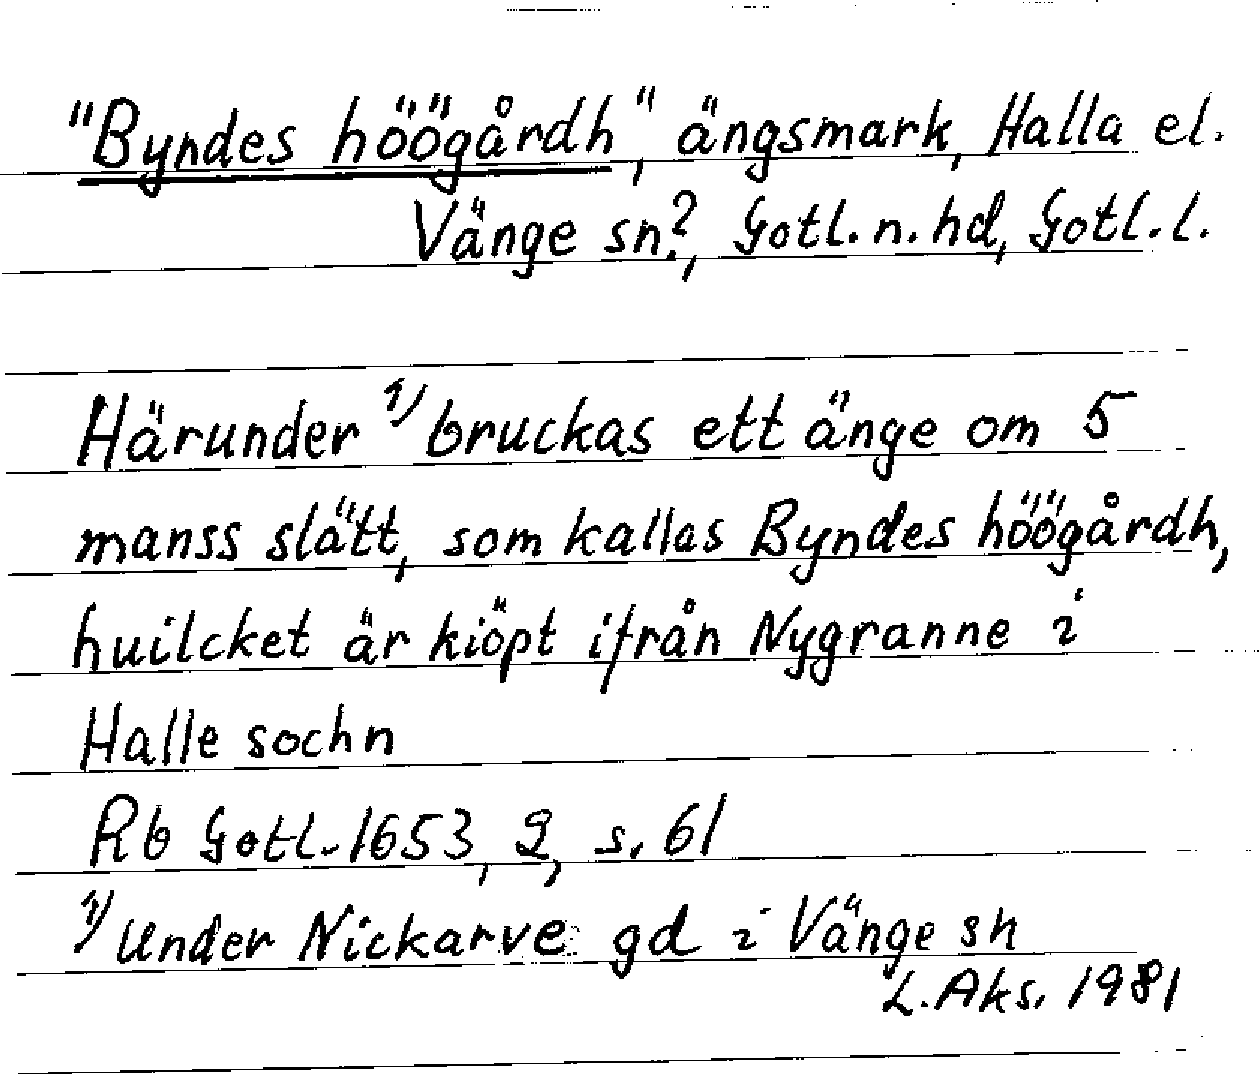 "Byndes höögårdh", ängsmark, Halla el.
Vänge sn?, Gotl. n. hd, Gotl. l.
Härunder 1) bruckas ett änge om 5
manss slätt, som kallas Byndes höögårdh,
huilcket är kiöpt ifrån Nygranne i
Halle sochn
Rb Gotl. 1653, 2, s. 61
1) Under Nickarve gd i Vänge sn
L. Aks. 1981